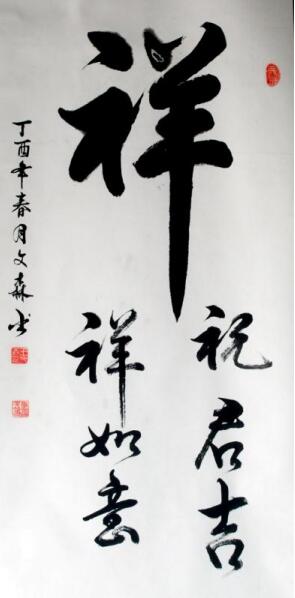 祥
祝君吉
祥如意
丁酉年春月文森书